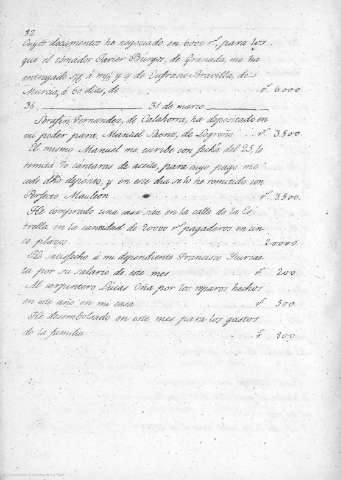 32
Cuyos documentos ha negociado en 6000 rs. para los
que el tomador Javier Burgos, de Granada, me ha
entregado
Murcia, á 60 dias, de rs. 6.000
36 31 de marzo
Serafin Fernandez, de Calahorra, ha depositado en
mi poder para Manuel Saenz, de Logroño rs. 3500
El mismo Manuel me escribe con fecha del 25 le
remita 70 cantaras de aceite, para cuyo pago me
cede dho depósito, y en ese dia se lo he remitido con
Perfecto Mauleon rs. 3500.
He comprado una casa sita en la calle de la Es-
trella en la cantidad de 20000 rs. pagaderos en cin-
co plazos 20000
He satisfecho á mi dependiente Francisco
por su salario de este mes rs. 200
Al carpintero Lucas Oña por los reparos hechos
en este año en mi casa rs. 500
He desembolsado en este mes para los gastos
de la familia rs. 800